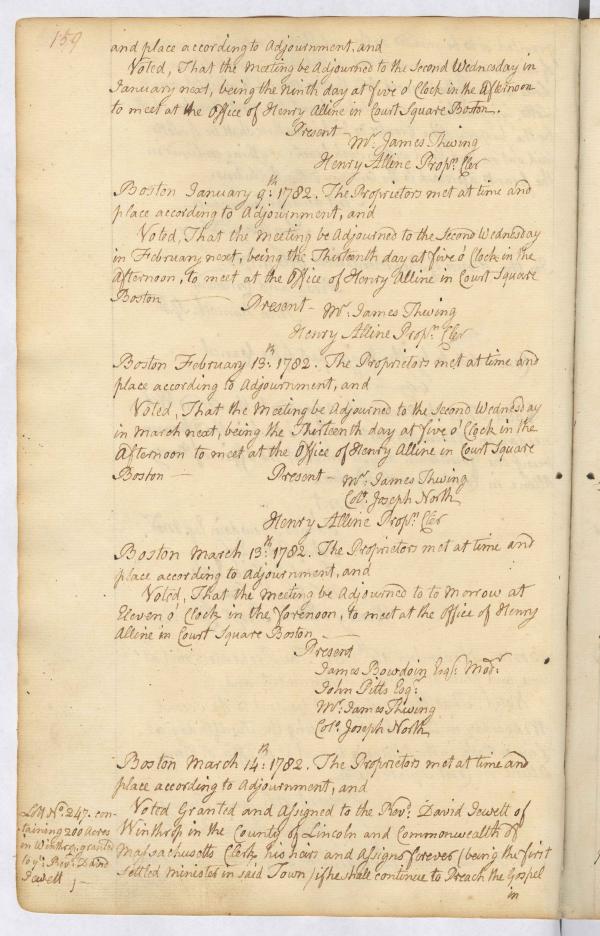 159
and place according to Adjournment, and
Voted, That the Meeting be Adjourned to the Second Wednesday in
January next, being the Ninth day at five o' Clock in the Afternoon
to meet at the Office of Henry Alline in Court Square Boston.
Present
Mr. James Thwing
Henry Alline Propr. Cler
Boston January 9th: 1782. The Proprietors met at time and
place according to Adjournment, and
Voted, That the Meeting be Adjourned to the Second Wednesday
in February next, being the Thirteenth day at five o' Clock in the
Afternoon, to meet at the Office of Henry Alline in Court Square
Boston — Present - Mr. James Thwing
Henry Alline Propr. Cler
Boston February 13th: 1782. The Proprietors met at time and
place according to Adjournment, and
Voted, That the Meeting be Adjourned to the Second Wednesday
in March next, being the Thirteenth day at five o' Clock in the
Afternoon to meet at the Office of Henry Alline in Court Square
Boston — Present - Mr. James Thwing
Colo. Joseph North
Henry Alline Propr. Cler
Boston March 13th: 1782. The Proprietors met at time and
place according to Adjournment, and
Voted, That the Meeting be Adjourned to to Morrow at
Eleven o' Clock in the forenoon, to meet at the Office of Henry
Alline in Court Square Boston —
Present
James Bowdoin Esqr: Modr:
John Pitts Esq:
Mr. James Thwing
Colo. Joseph North
Boston March 14th: 1782. The Proprietors met at time and
place according to Adjournment, and
Lott No. 247. con-
taining 200 Acres
in Winthrop, granted
to ye. Revd. David
Jewett ; —
Voted Granted and Assigned to the Revd. David Jewett of
Winthrop in the County of Lincoln and Commonwealth of
Massachusetts Clerk his hairs and Assigns forever (being the first
settled Minister in said Town) if he shall continue to Preach the Gospel
in